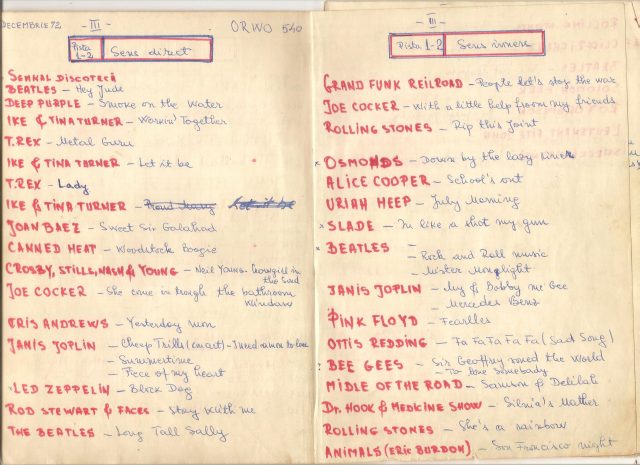 DECEMBRIE 72
- III -
ORWO 540
Pista 1-2 Sens direct
SEMNAL DISCOTECĂ
BEATLES - Hey Jude
DEEP PURPLE - Smoke on the Water
IKE & TINA TURNER - Workin' Together
T.REX - Metal Guru
IKE & TINA TURNER - Let it be
T.REX - Lady
IKE & TINA TURNER - Proud Mary Let it be
JOAN BAEZ - Sweet Sir Galahad
CANNED HEAT - Woodstock Boogie
CROSBY, STILLS, NASH & YOUNG - Neil Young. Cowgirl in
the Sand
JOE COCKER - She come in trough the bathroom
Window
CRIS ANDREWS - Yesterday man
JANIS JOPLIN - Cheap Trills (smart) - I need a man to love
- Summertime
- Piece of my heart
x LED ZEPPELIN - Black Dog
ROD STEWART & FACES - Stay with me
THE BEATLES - Long Tall Sally
- III -
Pista 1-2 Sens invers
GRAND FUNK REILROAD - People let's stop the war
JOE COCKER - With a little help froom my friends
ROLLING STONES - Rip this Joint
x OSMONDS - Down by the lazy river
ALICE COOPER - School's out
URIAH HEEP - July Morning
x SLADE - In like a shot my gun
x BEATLES -
- Rock and Roll music
- Mister Moonlight
JANIS JOPLIN - My & Bobby mc Gee
- Mercedes Benz
PINK FLOYD - Fearlles
OTTIS REDDING - Fa Fa Fa Fa Fa (Sad Song)
? BEE GEES - Sir Geoffrey saved the World
- To love somebody
MIDLE OF THE ROAD - Samson & Delilah
Dr. HOOK & MEDICINE SHOW - Silvia's Mother
ROLLING STONES - She's a rainbow
ANIMALS (ERIC BURDON) - San Francisco night